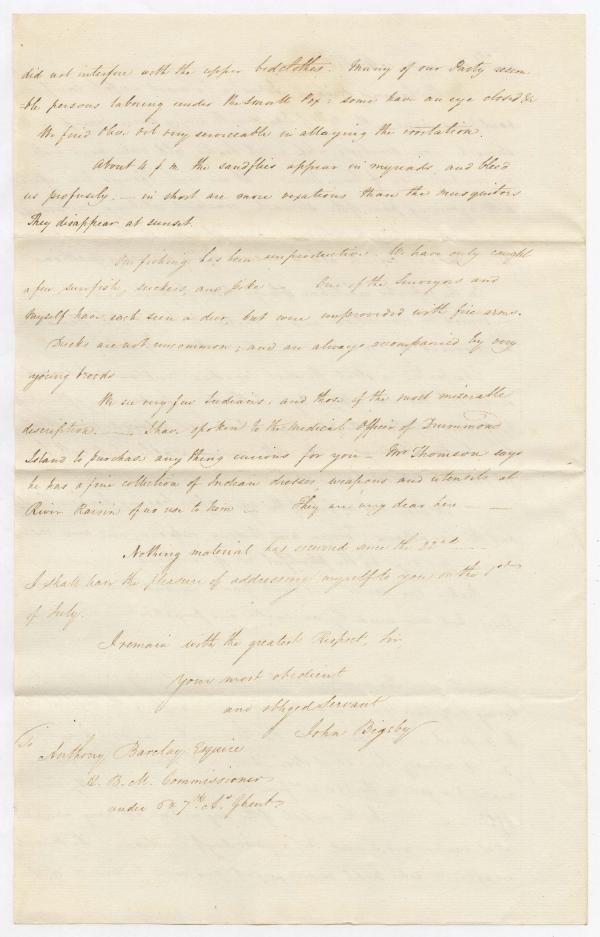 did not interfere with the upper bedclothes. Many of our Party resem
-ble persons labouring under the Small Pox: some have an eye closed &c
We find Olive Oil very serviceable in allaying the irritation.
About 4 p.m. the sandflies appear in myriads, and bleed
us profusely. — in short are more vexatious than the musquitors
They disappear at sunset.
Our fishing has been unproductive. We have only caught
a few sunfish, suckers, and pike — One of the Surveyors and
myself have each seen a deer, but were unprovided with fire arms.
Ducks are not uncommon; and are always accompanied by very
young broods
We see very few Indians, and those of the most miserable
description. — I have spoken to the Medical Officer of Drummond
Island to purchase any thing curious for you — Mr Thomson says
he has a fine collection of Indian dresses, weapons and utensils at
River Raisin of no use to him — They are very dear here —
Nothing material has occurred since the 22nd —
I shall have the pleasure of addressing myself to you on the 1st
of July.
I remain with the greatest Respect, Sir
Your most obedient
and obliged Servant
John Bigsby
To
Anthony Barclay Esquire
H. B. M. Commissioner
under 6 & 7th As. Ghent